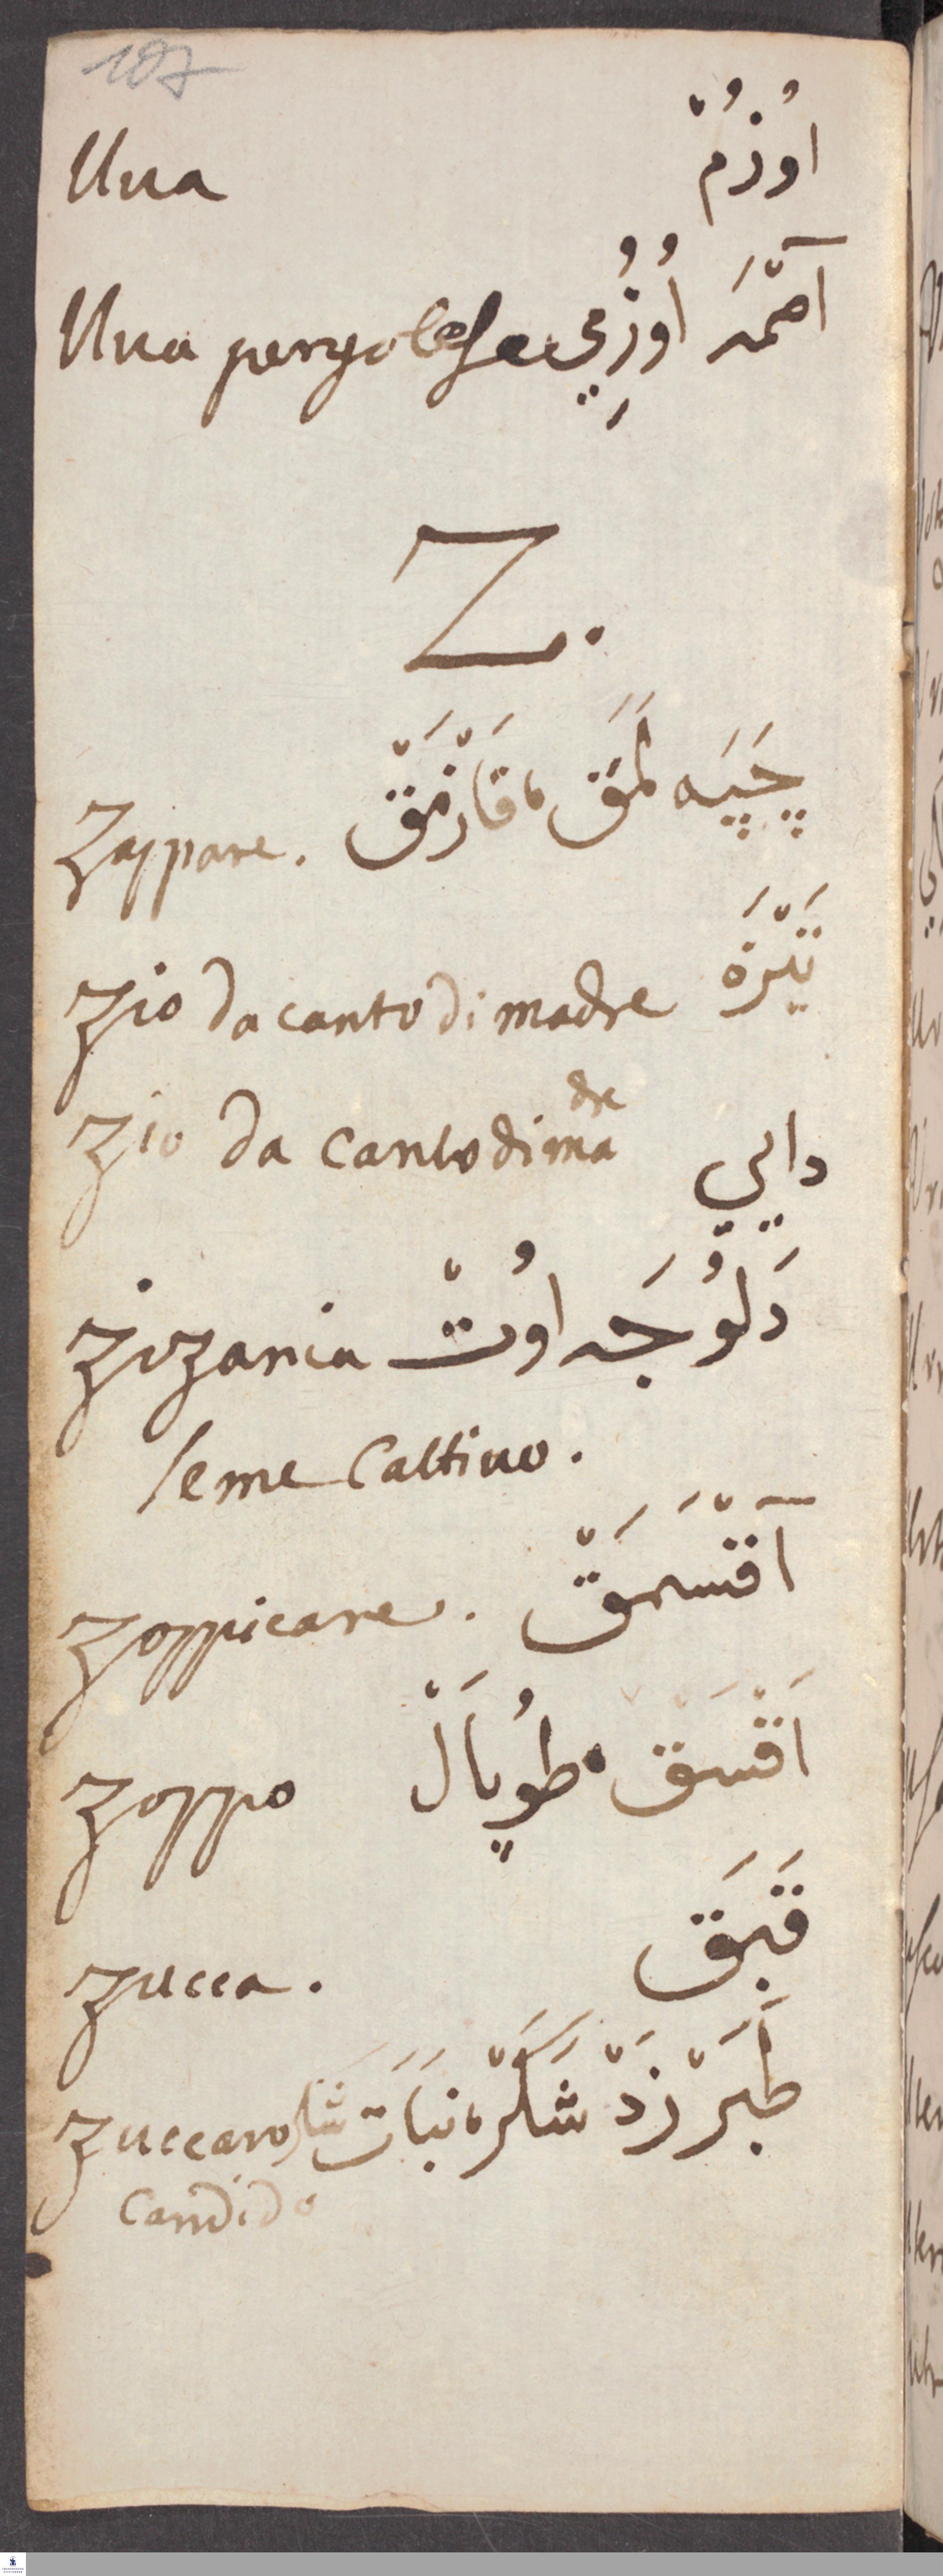 107
Uua اوُزُمْ
Uua pergolese آصْمَہ اوُزُمِي
Z.
Zappare. چَپَہ لَمَقْ، قَازْمَقْ
Zio da canto di madre تَيْزَه
Zio da canto di madre دايي
Zizania دَلوُجَہ اوُتْ
seme Cattiuo.
Zoppicare. آقْسَمَقْ
Zoppo اَقْسَقْ، طوُپَالْ
Zucca. قَبَقْ
Zuccaro طَبَرْزَدْ شَكَرْ، نَبَاتْ شكر
Candido